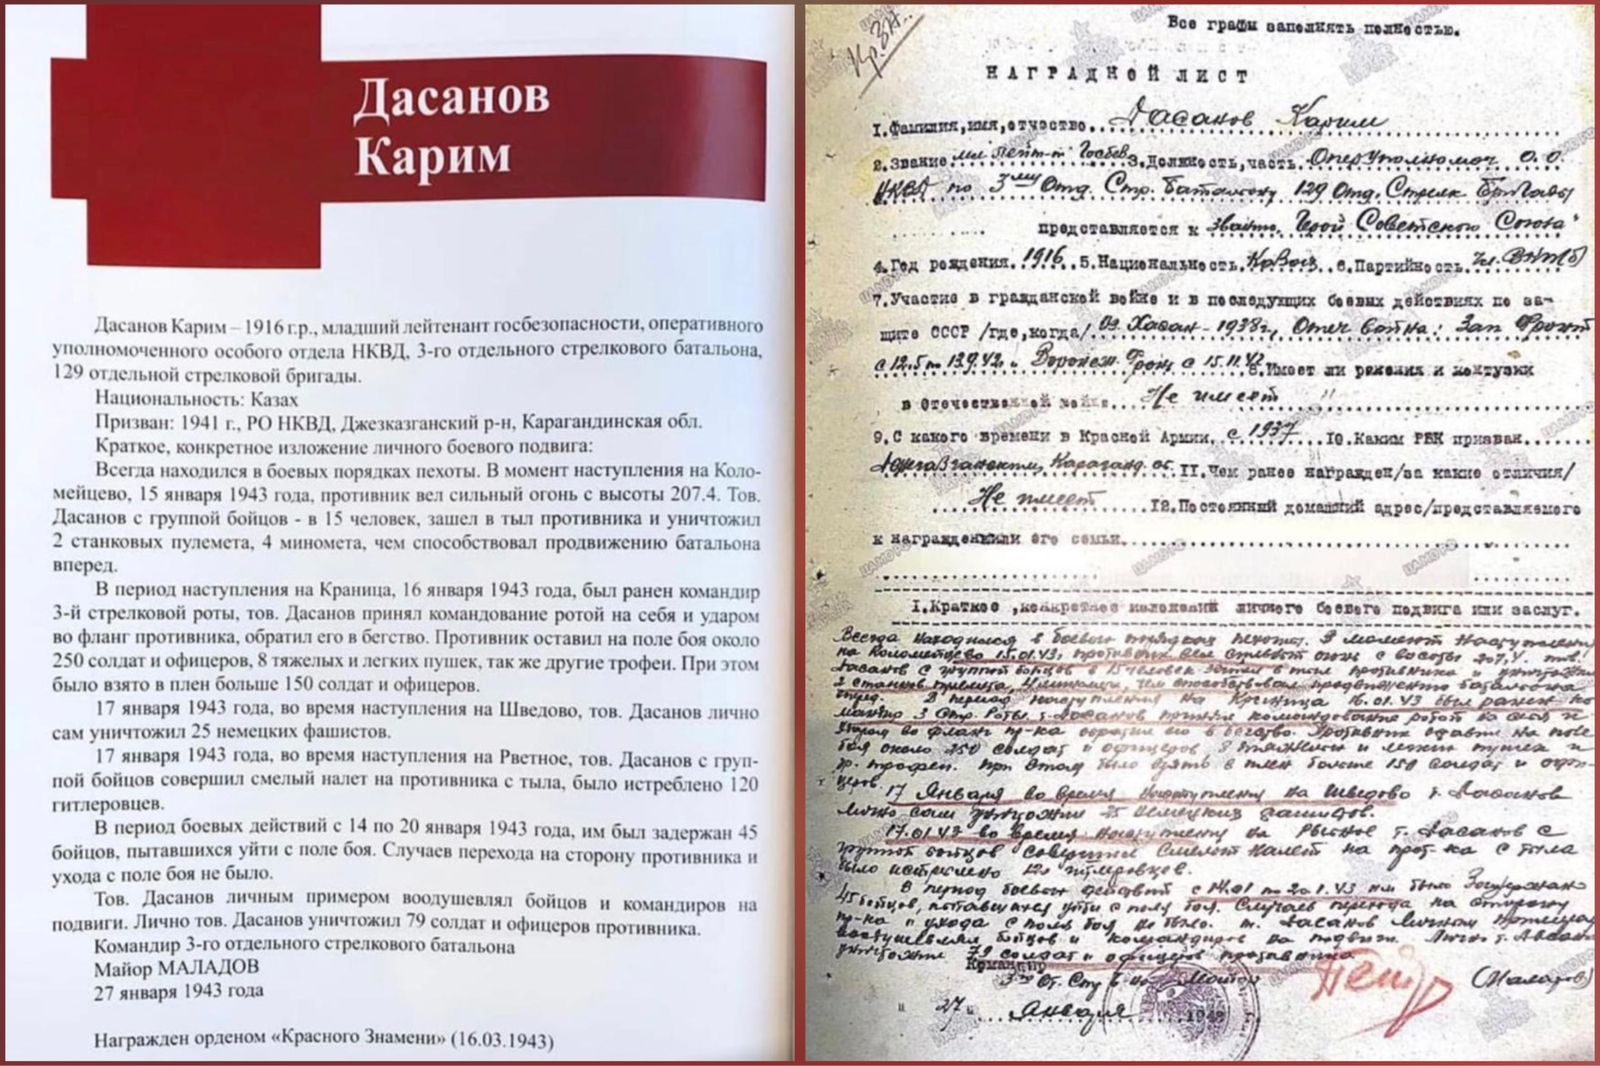 Дасанов
Карим
Дасанов Карим – 1916 г.р., младший лейтенант госбезопасности, оперативного
уполномоченного особого отдела НКВД, 3-го отдельного стрелкового батальона,
129 отдельной стрелковой бригады.
Национальность: Казах
Призван: 1941 г., РО НКВД, Джезказганский р-н, Карагандинская обл.
Краткое, конкретное изложение личного боевого подвига:
Всегда находился в боевых порядках пехоты. В момент наступления на Коло-
мейцево, 15 января 1943 года, противник вел сильный огонь с высоты 207.4. Тов.
Дасанов с группой бойцов - в 15 человек, зашел в тыл противника и уничтожил
2 станковых пулемета, 4 миномета, чем способствовал продвижению батальона
вперед.
В период наступления на Краница, 16 января 1943 года, был ранен командир
3-й стрелковой роты, тов. Дасанов принял командование ротой на себя и ударом
во фланг противника, обратил его в бегство. Противник оставил на поле боя около
250 солдат и офицеров, 8 тяжелых и легких пушек, так же другие трофеи. При этом
было взято в плен больше 150 солдат и офицеров.
17 января 1943 года, во время наступления на Шведово, тов. Дасанов лично
сам уничтожил 25 немецких фашистов.
17 января 1943 года, во время наступления на Рветное, тов. Дасанов с груп-
пой бойцов совершил смелый налет на противника с тыла, было истреблено 120
гитлеровцев.
В период боевых действий с 14 по 20 января 1943 года, им был задержан 45
бойцов, пытавшихся уйти с поле боя. Случаев перехода на сторону противника и
ухода с поле боя не было.
Тов. Дасанов личным примером воодушевлял бойцов и командиров на
подвиги. Лично тов. Дасанов уничтожил 79 солдат и офицеров противника.
Командир 3-го отдельного стрелкового батальона
Майор МАЛАДОВ
27 января 1943 года
Награжден орденом «Красного Знамени» (16.03.1943)
Кр. Зн.
Все графы заполнять полностью.
НАГРАДНОЙ ЛИСТ
1.Фамилия,имя,отчество Дасанов Карим
2.Звание мл лейт-т Госбез 3.Должность,часть Оперуполномоч О.О.
НКВД по 3му Отд. Стр. батальону 129 Отд. Стрелк бригады
представляется к званию "Герой Советского Союза"
4.Год рождения 1916 5.Национальность Казах 6.Партийность чл. ВКП(б)
7.Участие в гражданской войне и в последующих боевых действиях по за-
щите СССР /где,когда/ оз. Хасан - 1938г, Отеч война: Зап Фронт
Воронеж. Фрон с 15.11.42 8.Имеет ли ранения и контузии
в Отечественной войне Не имеет
9.С какого времени в Красной Армии с 1937 10.Каким РВК призван
Караганд. об. 11.Чем ранее награжден/за какие отличия/
Не имеет 12.Постоянный домашний адрес/представляемого
к награждению его семьи
1.Краткое ,конкретное изложение личного боевого подвига или заслуг.
Всегда находился в боевых порядках пехоты. В момент наступления
на Коломейцево 15.01.43, противник вел сильный огонь с высоты 207,4. тов.
Дасанов с группой бойцов в 15 человек зашел в тыл противника и уничтожил
2 станков. пулемета, 4 миномета, чем способствовал продвижению батальона
вперед. В период наступления на 16.01.43 был ранен ко-
мандир 3 Стр. Роты. т. Дасанов принял командование ротой на себя и
ударом во фланг пр-ка обратил его в бегство. Противник оставил на поле
боя около 250 солдат и офицеров 8 тяжелых и легких пушек и
др. трофеи. При этом было взято в плен больше 150 солдат и офи-
церов.
17 Января во время наступления на Шведово т. Дасанов
лично сам уничтожил 25 немецких фашистов.
17.01.43 во время наступления на т. Дасанов с
группой бойцов совершил смелый налет на прот-ка с тыла
было истреблено 120 гитлеровцев.
В период боевых действий с 14.01 по 20.1.43 им было задержано
45 бойцов, пытавшихся уйти с поля боя. Случаев перехода на сторону
пр-ка и ухода с поля боя не было. т. Дасанов личным примером
воодушевлял бойцов и командиров на подвиги. Лично т. Дасанов
уничтожил 79 солдат и офицеров противника.
Командир
3го От. Стр б-на Майор (Маладов)
"27" Января 1943